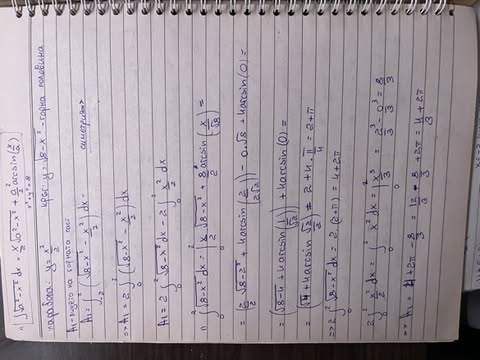 1) ∫√(a²-x²) dx = x/2 √(a²-x²) + a²/2 arcsin(x/a)
x²+y²=8
парабола: y = x²/2 круг: y = √(8-x²) - горна половина
A₁-лицето на горната част
A₁ = ∫₋₂² (√(8-x²) - x²/2) dx - симетрия>
=> A₁ = 2 ∫₀² (√(8-x²) - x²/2) dx
A₁ = 2 ∫₀² √(8-x²) dx - 2 ∫₀² x²/2 dx
1) ∫₀² √(8-x²) dx = |₀² x/2 √(8-x²) + 8/2 arcsin(x/√8) =
= (2/2 √(8-2²) + 4arcsin(2/2√2)) - 0.√8 + 4arcsin(0) =
= (√(8-4) + 4arcsin(1/√2)) + 4arcsin(0) =
= (√4 + 4arcsin √2/2) = 2+4.π/4 = 2+π
=> 2 ∫₀² √(8-x²) dx = 2.(2+π) = 4+2π
2 ∫₀² x²/2 dx = ∫₀² x² dx = |₀² x³/3 = 2³/3 - 0³/3 = 8/3
=> A₁ = 4+2π - 8/3 = 12/3 - 8/3 + 2π = 4/3 + 2π